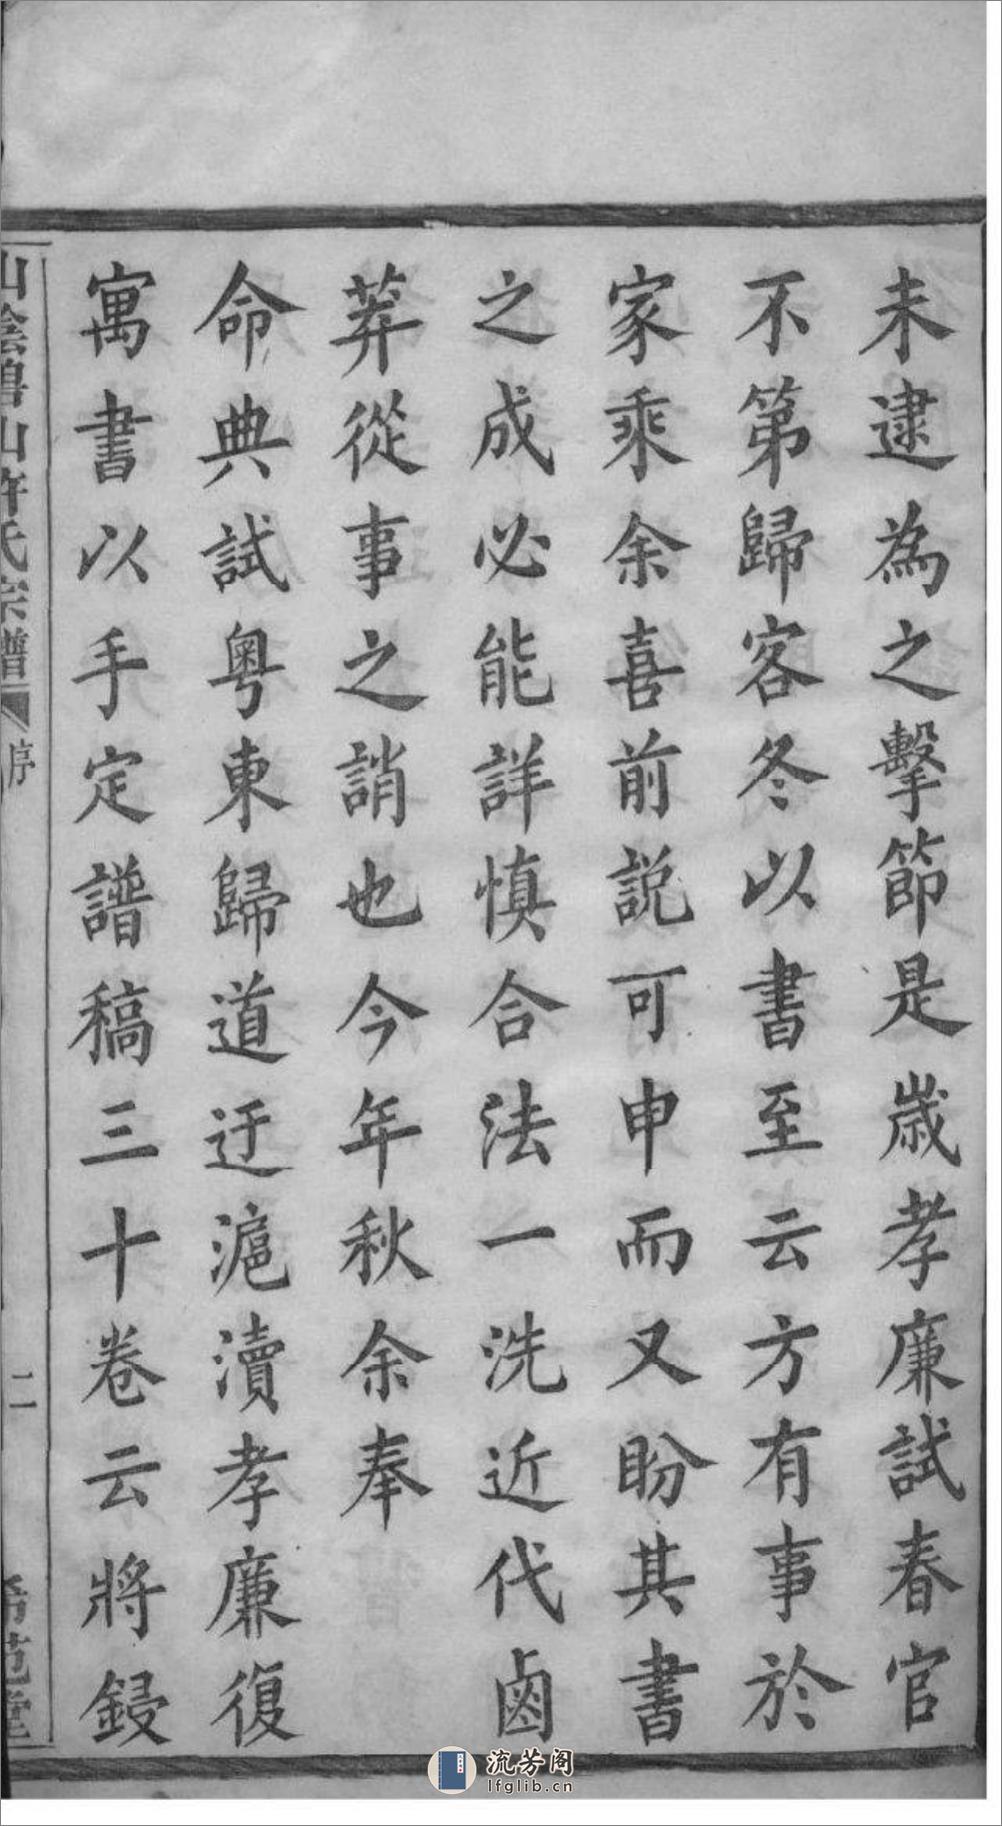 未逮為之擊節是歲孝廉試春官
不第歸客冬以書至云方有事於
家乘余喜前說可申而又盼其書
之成必能詳慎合法一洗近代鹵
莽從事之誚也今年秋余奉
命典試粵東歸道迂滬瀆孝廉復
寓書以手定譜稿三十卷云將鋟
山陰碧山許氏宗譜
序
二
希范堂
流芳阁
lfglib.cn